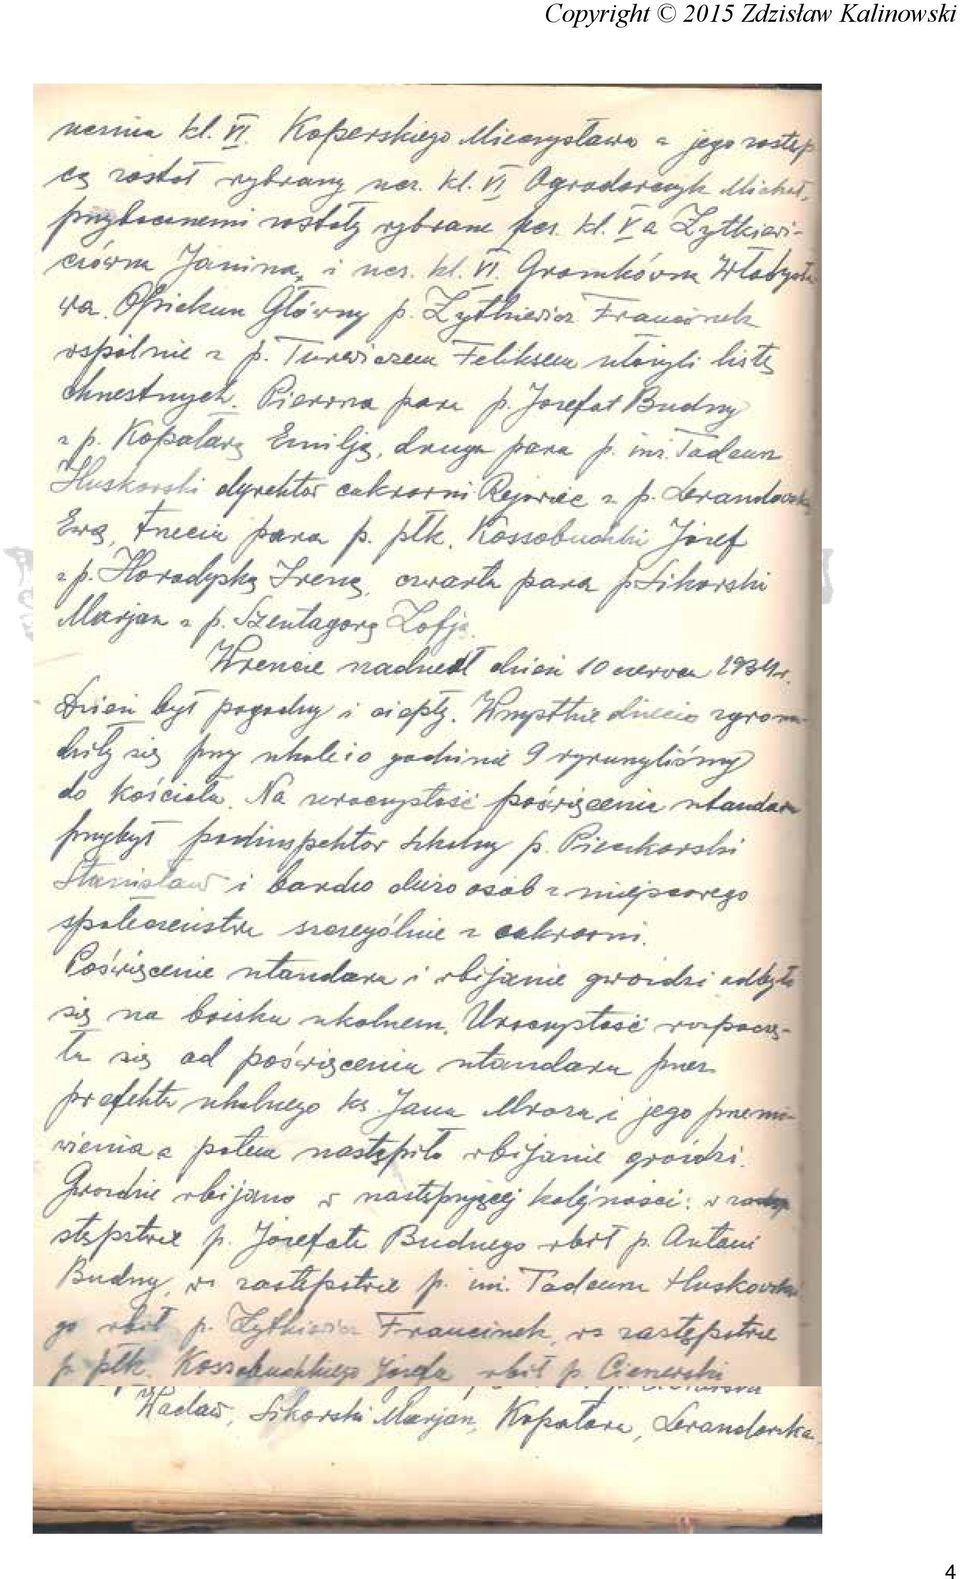 Copyright © 2015 Zdzisław Kalinowski
ucznia kl. VI. Koperskiego Mieczysława a jego zastęp-
cą został wybrany ucz. kl. VI Ogrodowczyk Michał,
przybocznemi zostały wybrane ucz. kl. V a Żytkiewi-
czówna Janina, i ucz. kl. VI. Gromkówna Władysła
wa. Opiekun Główny p. Żytkiewicz Franciszek
wspólnie z p. Turewiczem Feliksem ułożyli listę
chrzestnych. Pierwsza para p. Jozefat Budny
z p. Kopatarą Emilją, druga para p. inż. Tadeusz
Huskowski dyrektor cukrowni Rejowiec z p. Lewandowską
Ewą, trzecia para p. płk. Kossobudzki Józef
z p. Horodyską Ireną, czwarta para p. Sikorski
Marjan z p. Szentagorą Zofją.
Wreszcie nadszedł dzień 10 czerwca 1934 r.
Dzień był pogodny i ciepły. Wszystkie dzieci zgroma-
dziły się przy szkole i o godzinie 9 wyruszyliśmy
do kościoła. Na uroczystość poświęcenia sztandaru
przybył podinspektor szkolny p. Pieczkowski
Stanisław i bardzo dużo osób z miejscowego
społeczeństwa szczególnie z cukrowni.
Poświęcenie sztandaru i wbijanie gwoździ odbyło
się na boisku szkolnem. Uroczystość rozpoczę-
ła się od poświęcenia sztandaru przez
prefekta szkolnego ks. Jana Mroza i jego przemó-
wienia a potem nastąpiło wbijanie gwoździ.
Gwoździe wbijano w następującej kolejności: w
stępstwie p. Józefata Budnego wbił p. Antoni
Budny, w zastępstwie p. inż. Tadeusza Huskowskie
go wbił p. Żytkiewicz Franciszek, w zastępstwie
p. płk. Kossobudzkiego Józefa wbił p. Ciszewski
Wacław, Sikorski Marjan, Kopatara, Lewandowska,
4